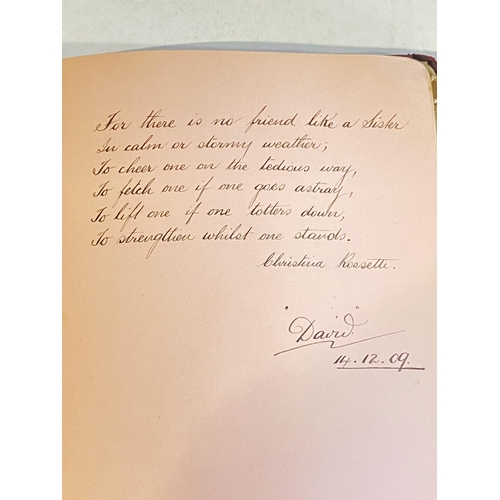 For there is no friend like a Sister
In calm or stormy weather;
To cheer one on the tedious way,
To fetch one if one goes astray,
To lift one if one totters down,
To strengthen whilst one stands.
Christina Rossetti.
"David."
14.12.09.